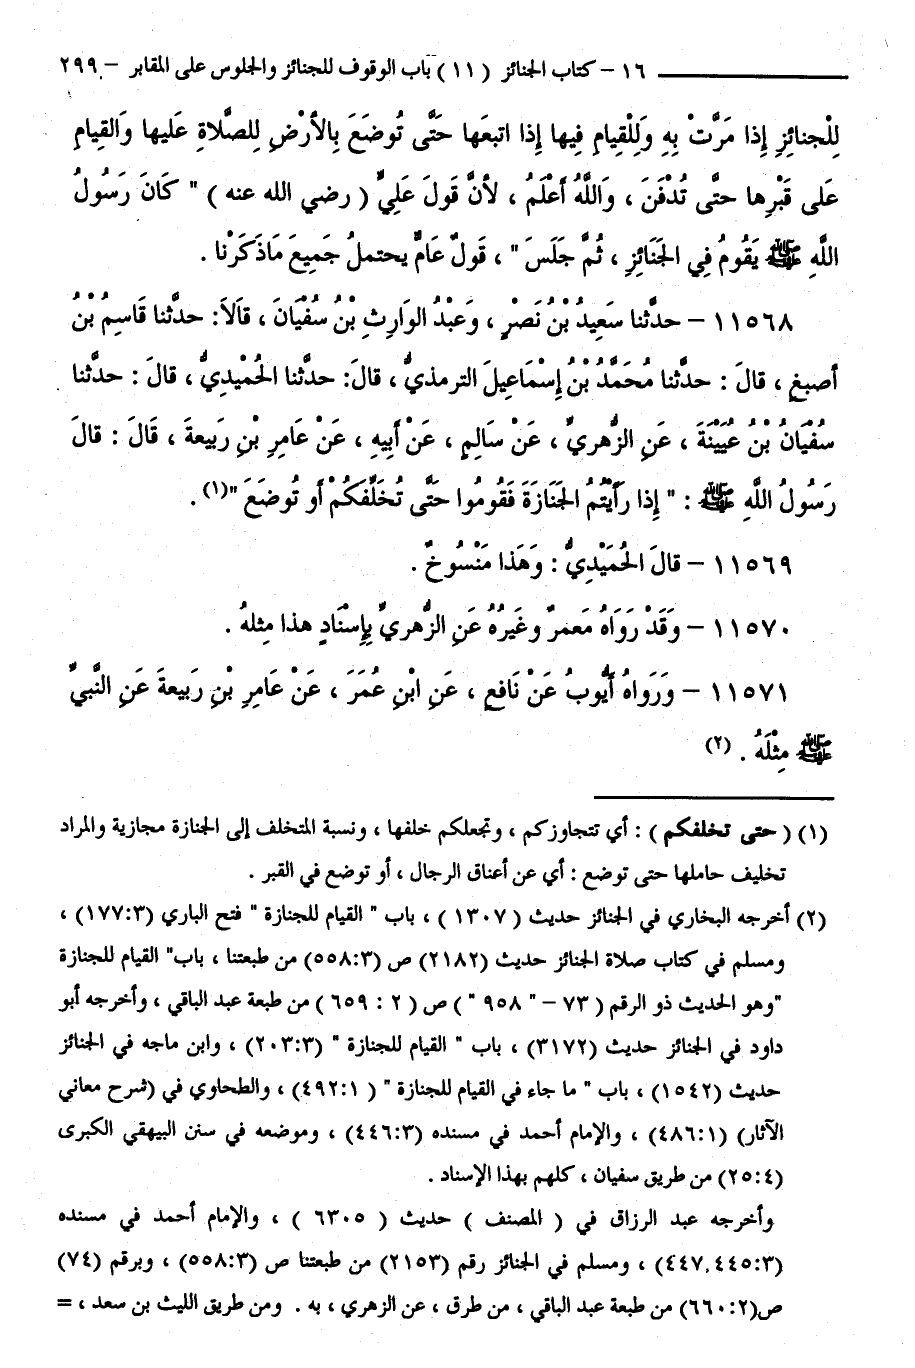 ١٦ – كتاب الجنائز ( ١١ ) باب الوقوف للجنائز والجلوس على المقابر – ٢٩٩
لِلْجنائِزِ إِذا مَرَّتْ بِهِ وَلِلْقِيامِ فِيها إِذا اتبعَها حَتَّى تُوضَعَ بِالأَرْضِ لِلصَّلاةِ عَليها وَالقِيامِ
عَلى قَبْرِها حتَّى تُدْفَنَ ، وَاللَّهُ أَعْلَمُ ، لأنَّ قَولَ عَلِيٍّ ( رضي الله عنه ) " كَانَ رَسُولُ
اللَّهِ ﷺ يَقُومُ فِي الجَنَائِزِ ، ثُمَّ جَلَسَ " ، قَولٌ عَامٌّ يحتملُ جَمِيعَ مَاذَكَرْنا .
١١٥٦٨ – حدثَّنا سَعِيدُ بْنُ نَصْرٍ ، وَعَبْدُ الوَارِثِ بْنُ سُفْيَانَ ، قالاَ: حدثَّنا قَاسِمُ بْنُ
أصبغٍ ، قالَ : حدثَّنا مُحَمَّدُ بْنُ إِسْمَاعِيلَ الترمذيُّ ، قالَ: حدثَّنا الحُميْدِيُّ ، قالَ : حدثَّنا
سُفْيَانُ بْنُ عُيَيْنَةَ ، عَنِ الزُّهريِّ ، عَنْ سَالِمٍ ، عَنْ أَبِيهِ ، عَنْ عَامِرِ بْنِ رَبِيعةَ ، قَالَ : قالَ
رَسُولُ اللَّهِ ﷺ : " إِذا رَأَيْتُمُ الجَنَازَةَ فَقُومُوا حَتَّى تُخَلِّفَكُمْ أَو تُوضَعَ "(١) .
١١٥٦٩ – قالَ الحُمَيْدِيُّ : وَهَذا مَنْسُوخٌ .
١١٥٧٠ – وَقَدْ رَوَاهُ مَعمرٌ وغَيرُهُ عَنِ الزُّهريِّ بِإِسْنَادٍ هذا مِثلهُ .
١١٥٧١ – وَرَوَاهُ أَيُّوبُ عَنْ نَافعٍ ، عَنِ ابْنِ عُمَرَ ، عَنْ عَامِرِ بْنِ رَبيعةَ عَنِ النَّبيِّ
ﷺ مِثْلَهُ . (٢)
(١) ( حتى تخلفكم ) : أي تتجاوزكم ، وتجعلكم خلفها ، ونسبة المتخلف إلى الجنازة مجازية والمراد
تخليف حاملها حتى توضع : أي عن أعناق الرجال ، أو توضع في القبر .
(٢) أخرجه البخاري في الجنائز حديث ( ١٣٠٧ ) ، باب " القيام للجنازة " فتح الباري (١٧٧:٣) ،
ومسلم في كتاب صلاة الجنائز حديث (٢١٨٢) ص (٥٥٨:٣) من طبعتنا ، باب" القيام للجنازة
"وهو الحديث ذو الرقم ( ٧٣ – " ٩٥٨ " ) ص ( ٢ : ٦٥٩ ) من طبعة عبد الباقي ، وأخرجه أبو
داود في الجنائز حديث (٣١٧٢) ، باب " القيام للجنازة " (٢٠٣:٣) ، وابن ماجه في الجنائز
حديث (١٥٤٢) ، باب " ما جاء في القيام للجنازة " ( ٤٩٢:١) ، والطحاوي في (شرح معاني
الآثار) (٤٨٦:١) ، والإمام أحمد في مسنده (٤٤٦:٣) ، وموضعه في سنن البيهقي الكبرى
(٢٥:٤) من طريق سفيان ، كلهم بهذا الإسناد .
وأخرجه عبد الرزاق في ( المصنف ) حديث ( ٦٣٠٥ ) ، والإمام أحمد في مسنده
(٤٤٧,٤٤٥:٣) ، ومسلم في الجنائز رقم (٢١٥٣) من طبعتنا ص (٥٥٨:٣) ، وبرقم (٧٤)
ص(٦٦٠:٢) من طبعة عبد الباقي ، من طرق ، عن الزهري ، به . ومن طريق الليث بن سعد ، =